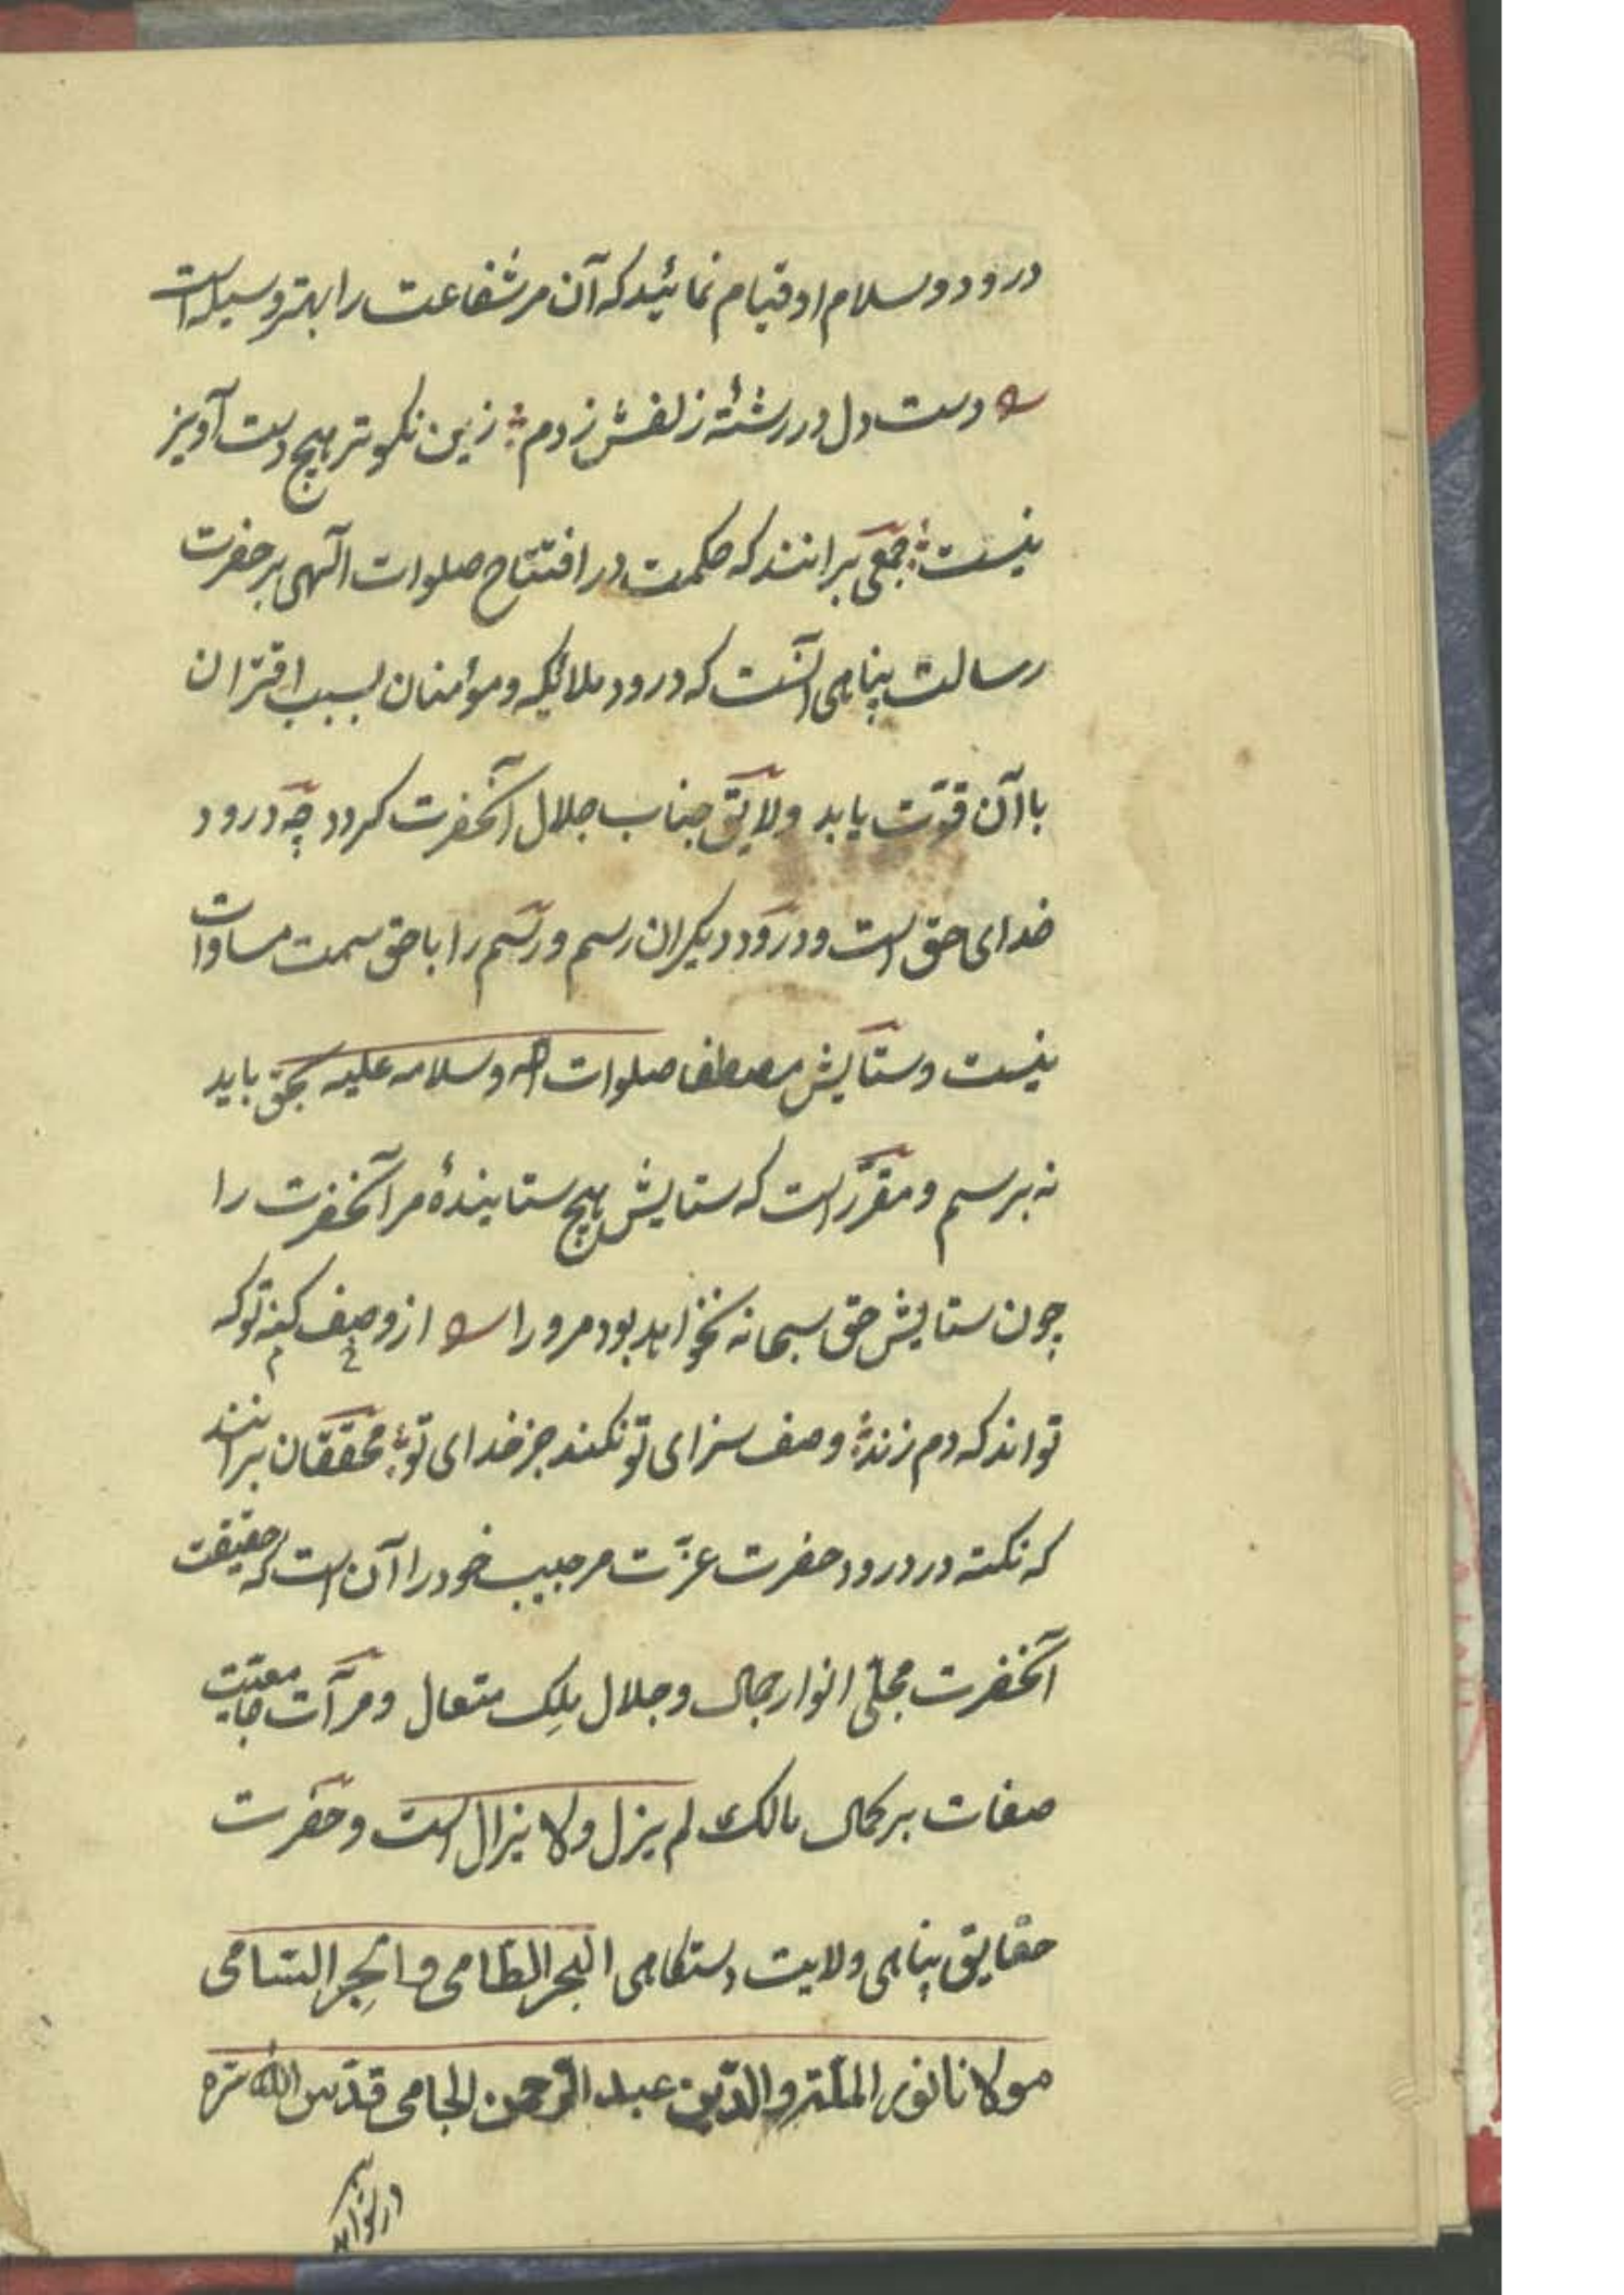 درود و سلام او قیام نمائید که آن مر شفاعت را بهتر وسیله است
دست دل در رشتۀ زلفش زدم ؛ زین نکوتر هیچ دست آویز
نیست ؛ جمعی برانند که حکمت در افتتاح صلوات الهی بر حضرت
رسالت پناهی آنست که درود ملائیکه و مؤمنان بسبب اقتران
با آن قوّت یابد و لایق جناب جلال آنحضرت کردد چه درود
خدای حق است و درود دیکران رسم و رسم را با حق سمت مساوات
نیست و ستایش مصطفا صلوات الله و سلامه علیه بحق باید
نه برسم و مقرّر است که ستایش هیچ ستایندۀ مر آنحضرت را
چون ستایش حق سبحانه نخواهد بود مرورا از وصف کنه تو که
تواند که دم زند ؛ وصف سزای تو نکند جز خدای تو ؛ محققان برانند
که نکته در درود حضرت عزّت مر حبیب خود را آن است که حقیقت
آنحضرت مجلّی انوار جمال و جلال ملِک متعال و مرآت جامعیّت
صفات بر کمال مالک لم یزل ولا یزال است و حضرت
حقایق پناهی ولایت دستکاهی البحر الطّامی و الحِبر السّامی
مولانا نور الملّة و الدّین عبد الرّحمن الجامی قدّس الله سرّه